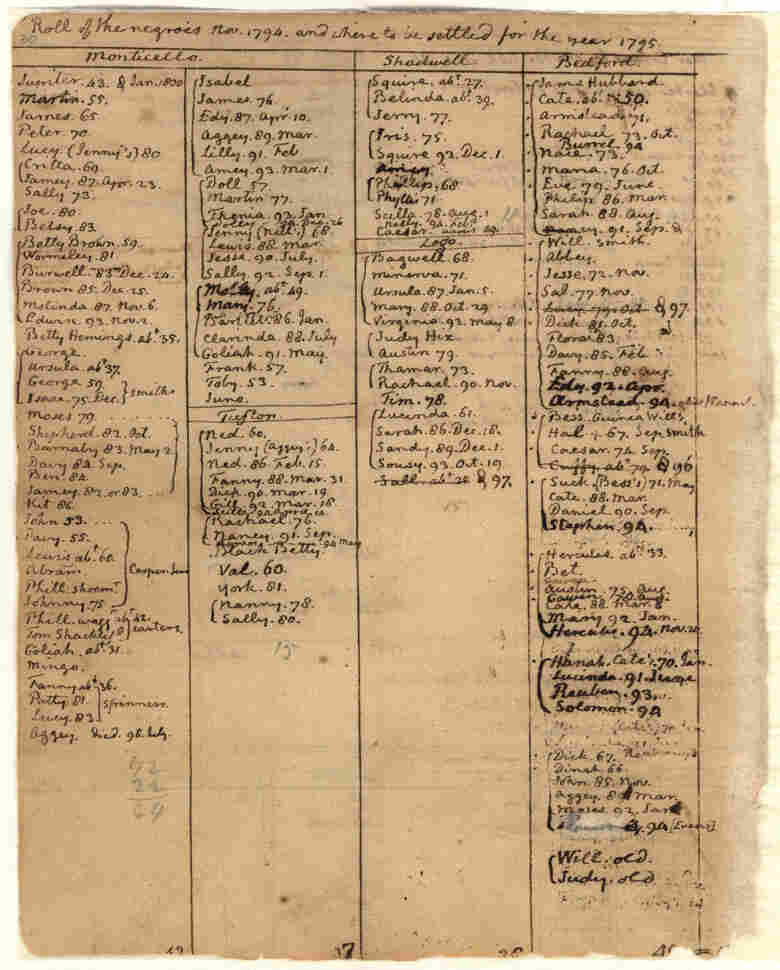 Roll of the negroes Nov. 1794. and where to be settled for the year 1795.
30
Monticello.
Jupiter. 43. & Jan. 1800
Martin. 55.
James. 65
Peter. 70
Lucy (Jenny's) 80
Critta. 69.
Jamey. 87. Apr. 23.
Sally 73.
Joe. 80.
Betsy. 83.
Betty Brown. 59.
Wormeley. 81.
Burwell. 83. Dec. 24.
Brown. 85. Dec. 25.
Melinda. 87. Nov. 6.
Edwin. 93. Nov. 2.
Betty Hemings. abt. 35.
George.
Ursula. abt 37.
George 59.
Isaac. 75. Dec. smiths
Moses 79.
Shepherd. 82. Oct.
Barnaby 83. May 2
Davy 84. Sep.
Ben. 84.
Jamey. 82. or 83.
Kit 86.
John 53.
Davy. 55.
Lewis abt. 60.
Abram.
Phill. shoemr.
Johnny. 75
Phill. wagg. abt 42.
Tom Shackles carters
Goliah. abt 31.
Mingo.
Fanny abt 36.
Patty 81. spinners
Lucy. 83.
Aggey. died 98. July.
Isabel
James. 76.
Edy. 87. Apr. 10.
Aggey. 89. Mar.
Lilly. 91. Feb
Amey. 93. Mar. 1.
Doll 57.
Martin 77.
Thenia. 93. Jan.
Jenny (Ned's.) 68
Lewis. 88. Mar.
Jesse. 90. July.
Sally. 92. Sep. 1.
Molly. abt. 49.
Mary. 76.
Bartlet. 86. Jan.
Clarinda. 88. July
Goliah. 91. May.
Frank. 57.
Toby. 53.
Juno.
Tufton.
Ned. 60.
Jenny (Aggy's) 64.
Ned. 86. Feb. 15.
Fanny. 88. Mar. 31.
Dick. 90. Mar. 19.
Gill. 92. Mar. 18.
Rachael. 76.
Nancy. 91. Sep.
Black Betty.
Val. 60.
York. 81.
Nanny. 78.
Sally. 80.
15
Shadwell
Squire. abt. 27.
Belinda. abt. 39.
Jerry. 77.
Iris. 75.
Squire 92. Dec. 1.
Phillip. 68.
Phyllis. 71
Scilla. 78. Aug. 1
Caesar.
Lego.
Bagwell. 68.
Minerva. 71.
Ursula. 87. Jan. 5.
Mary. 88. Oct. 29.
Virginia. 93. May 8
Judy Hix
Austin 79.
Thamar. 73.
Rachael. 90. Nov.
Tim. 78.
Lucinda. 61.
Sarah. 86. Dec. 18.
Sandy. 89. Dec. 1.
Sousy. 93. Oct. 19.
Sall abt. 28 & 97.
Bedford.
James Hubbard.
Cate. abt. 50.
Armstead. 71.
Rachael 73. Oct.
Burrel. 94
Nace. 73.
Maria. 76. Oct.
Eve. 79. June.
Philip. 86. Mar.
Sarah. 88. Aug.
Nancy. 91. Sep. 8
Will. Smith.
Abbey.
Jesse. 72. Nov.
Sal. 77. Nov.
Lucy. 79. Oct. & 97.
Dick. 81. Oct.
Flora. 83.
Davy. 85. Feb
Fanny. 88. Aug.
Edy. 92. Apr.
Armstead. 94.
Bess. Guinea Will's.
Hal. 67. Sep. Smith
Caesar. 74. Sep.
Cuffy. abt. 79. & 96
Suck (Bess's) 71. May
Cate. 88. Mar.
Daniel. 90. Sep.
Stephen. 94.
Hercules. abt. 33.
Bet.
Austin. 75. Aug.
Gawen. 78. Aug.
Cate. 88. Mar. 8
Mary 92. Jan.
Hercules. 94. Nov. 20.
Hanah. Cate's. 70. Jan.
Lucinda. 91.
Reuben. 93.
Solomon. 94
Dick. 67.
Dinah. 66.
John. 85. Nov.
Aggey. 89. Mar.
Moses. 92. Jan.
94. (Evans)
Will. old.
Judy. old